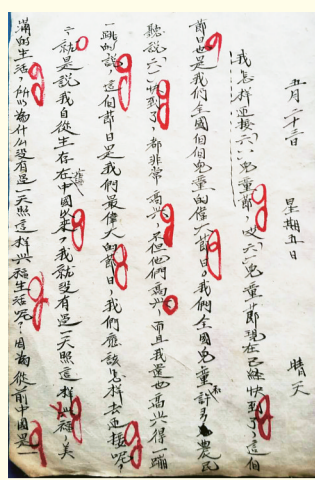 五月二十三日　星期五日　晴天
我怎样迎接六一兒童節，
六一兒童节即現在已經快到了，這個
節日也是我們全國個個兒童的偉大節日。我們全國兒童和許多農民
聽說六一快到了，都非常高兴，不但他們高兴，而且我還也高兴得一蹦
一跳的說，這個節日是我們最偉大的節日，我們應該怎样去迎接呢，
就是說我自從生存在中國以來，我就沒有過一天照這样兴福，美
滿的生活，所以為什么沒有過一天照這样兴福生活呢？因為從前中國是一